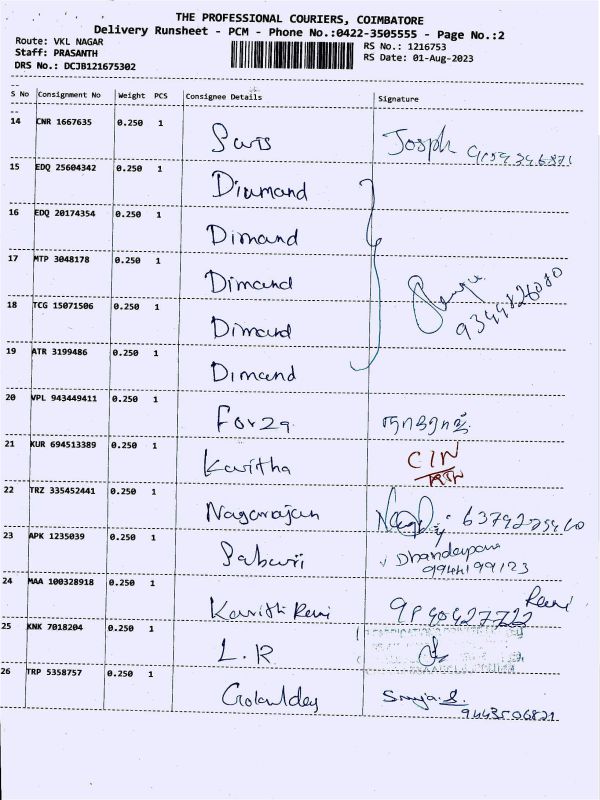 THE PROFESSIONAL COURIERS, COIMBATORE
Delivery Runsheet - PCM - Phone No.:0422-3505555 - Page No.:2
Route: VKL NAGAR
RS No.: 1216753
Staff: PRASANTH
RS Date: 01-Aug-2023
DRS No.: DCJB121675302
S No Consignment No Weight PCS Consignee Details Signature
14 CNR 1667635 0.250 1
Joseph
15 EDQ 25604342 0.250 1 Diamand
16 EDQ 20174354 0.250 1 Dimand
17 MTP 3048178 0.250 1 Dimand
9344826080
18 TCG 15071506 0.250 1 Dimand
19 ATR 3199486 0.250 1 Dimand
20 VPL 943449411 0.250 1 Forza
21 KUR 694513389 0.250 1 Kavitha CIN
22 TRZ 335452441 0.250 1 Nagarajan
23 APK 1235039 0.250 1
9944199123
24 MAA 100328918 0.250 1 Kavithi Reni Reni
25 KNK 7018204 0.250 1 L.R
26 TRP 5358757 0.250 1
9443506821